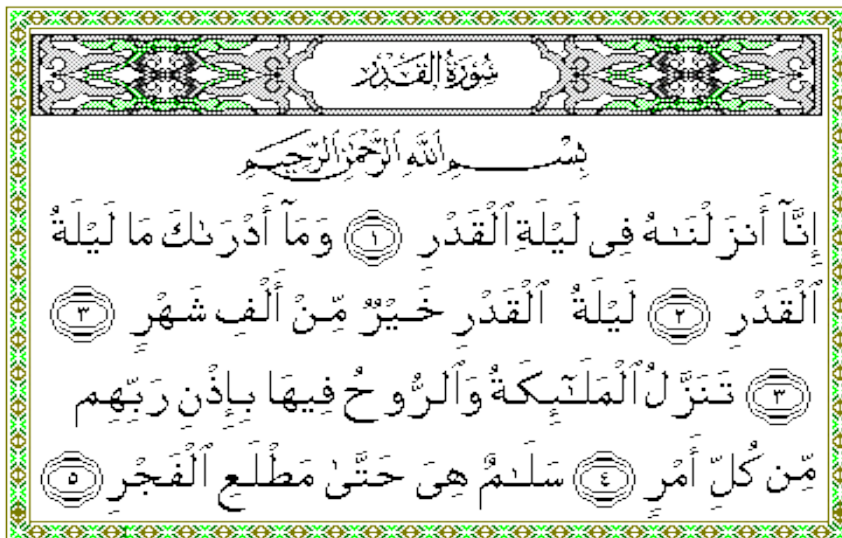 سُورَةُ القَدْرِ
بِسْمِ اللَّهِ الرَّحْمَٰنِ الرَّحِيمِ
إِنَّآ أَنزَلْنَـٰهُ فِى لَيْلَةِ ٱلْقَدْرِ ١ وَمَآ أَدْرَىٰكَ مَا لَيْلَةُ
ٱلْقَدْرِ ٢ لَيْلَةُ ٱلْقَدْرِ خَيْرٌ مِّنْ أَلْفِ شَهْرٍ ٣
٣ تَنَزَّلُ ٱلْمَلَـٰٓئِكَةُ وَٱلرُّوحُ فِيهَا بِإِذْنِ رَبِّهِم
مِّن كُلِّ أَمْرٍ ٤ سَلَـٰمٌ هِىَ حَتَّىٰ مَطْلَعِ ٱلْفَجْرِ ٥